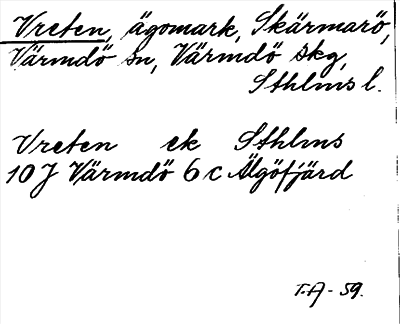 Vreten, ägomark, Skärmarö,
Värmdö sn, Värmdö skg,
Sthlms l.
Vreten ek Sthlms
10 J Värmdö 6 c Älgöfjärd
T.A - 59.